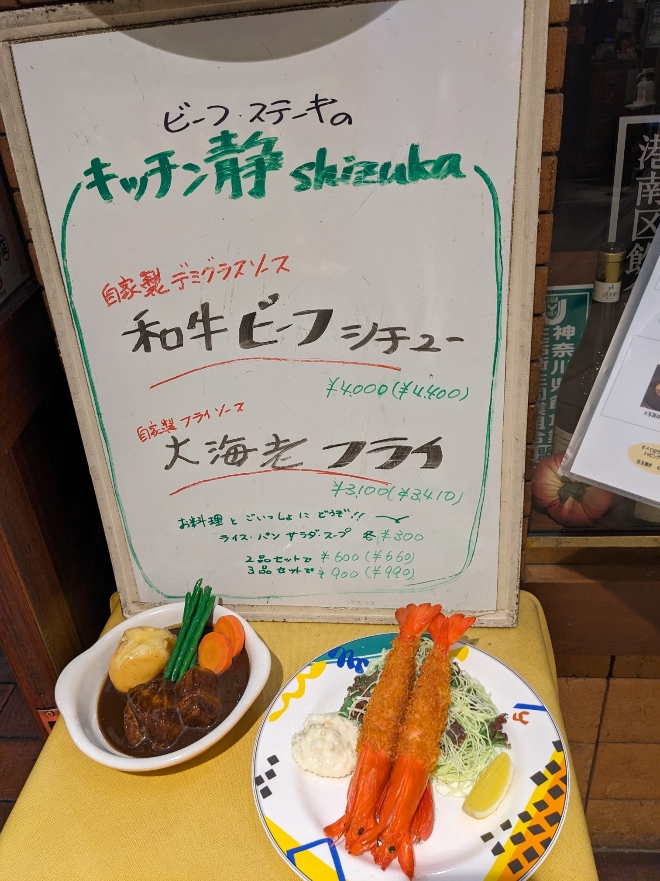 ビーフ・ステーキの
キッチン静 shizuka
自家製デミグラスソース
和牛ビーフシチュー
¥4,000(¥4,400)
自家製フライソース
大海老フライ
¥3,100(¥3,410)
お料理とごいっしょにどうぞ!!
ライス・パン サラダ・スープ 各¥300
2品セットで ¥600(¥660)
3品セットで ¥900(¥990)
港南区飲
神奈川県